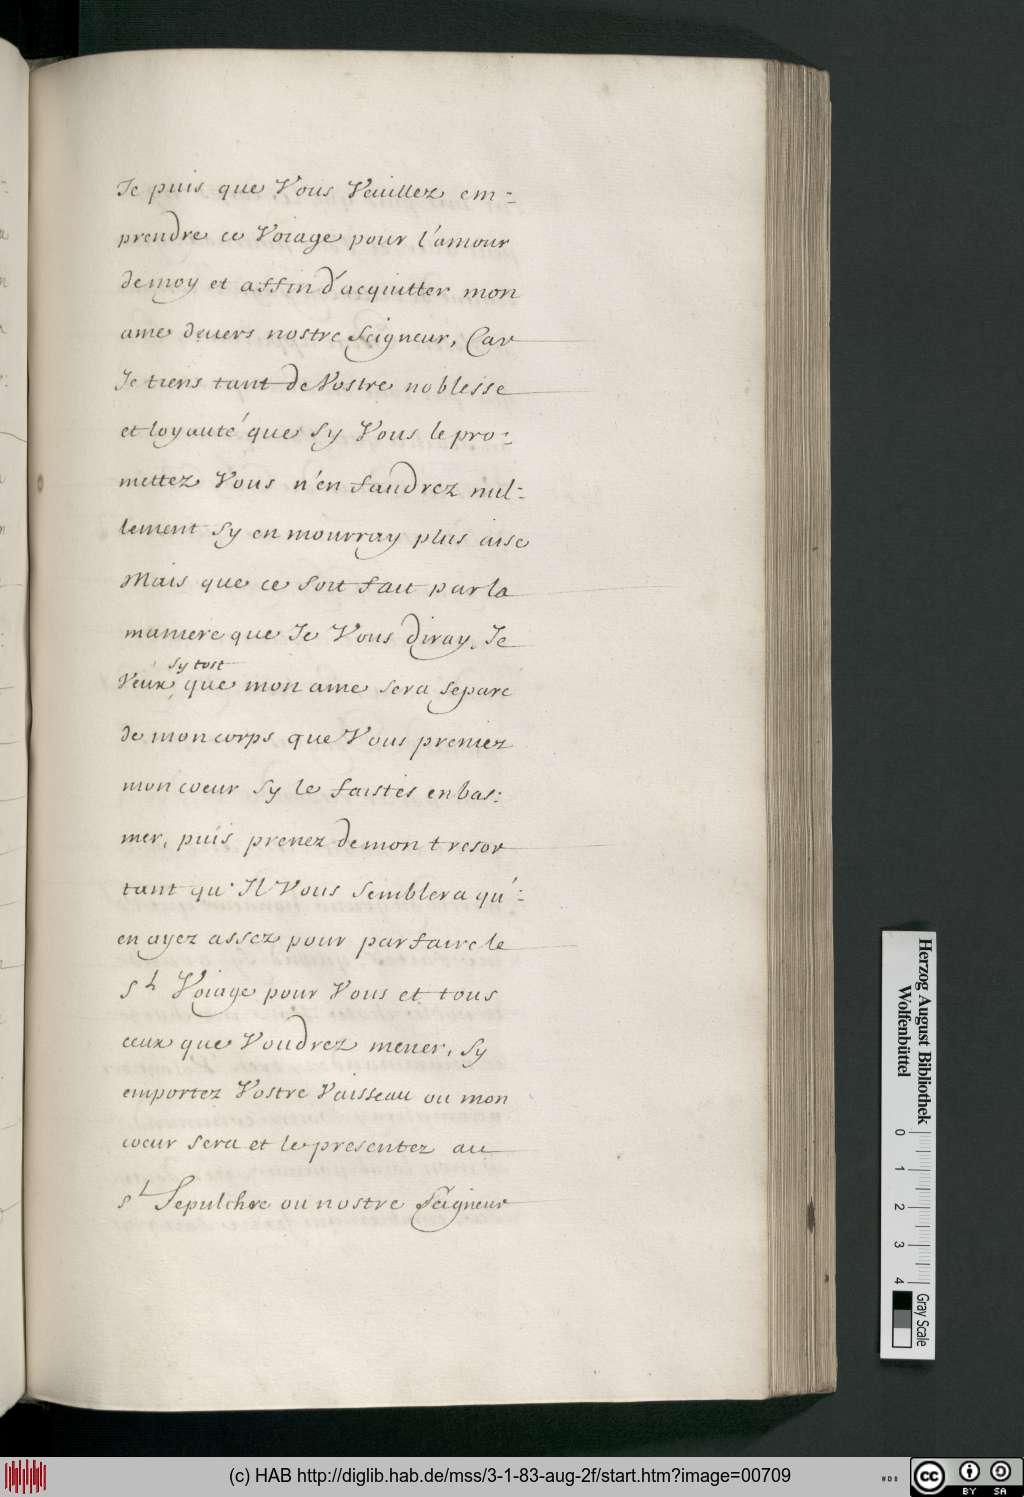 Je puis que Vous Veuillez em=
prendre ce Voiage pour l'amour
de moy et affin d'acquitter mon
ame deuers nostre Seigneur, Car
Je tiens tant de Vostre noblesse
et loyauté que sy Vous le pro=
mettez Vous n'en faudrez nul=
lement sy en mourray plus aise
Mais que ce soit fait par la
maniere que Je Vous diray, Je
sy tost
Veux, que mon ame sera separe
de mon corps que Vous preniez
mon coeur sy le faistes enbas=
mer, puis prenez de mon tresor
tant qu'Il Vous semblera qu'=
en ayez assez pour parfaire le
St Voiage pour Vous et tous
ceux que Voudrez mener, sy
emportez Vostre Vaisseau ou mon
coeur sera et le presentez au
St Sepulchre ou nostre Seigneur
Herzog August Bibliothek
Wolfenbüttel
0 1 2 3 4
Gray Scale
(c) HAB http://diglib.hab.de/mss/3-1-83-aug-2f/start.htm?image=00709
WDB
cc BY SA